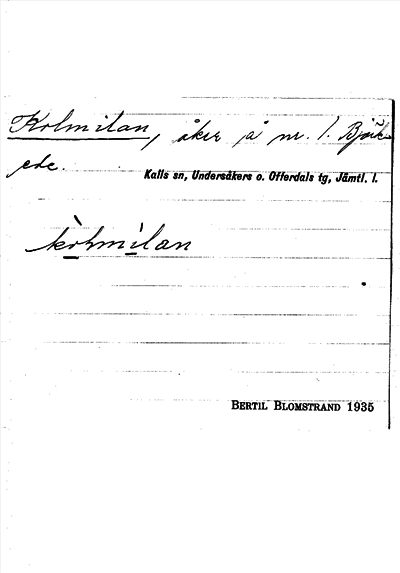 Kolmilan, åker å nr. 1. Björk-
ede.
Kalls sn, Undersåkers o. Offerdals tg, Jämtl. l.
kòlmìlan
BERTIL BLOMSTRAND 1935